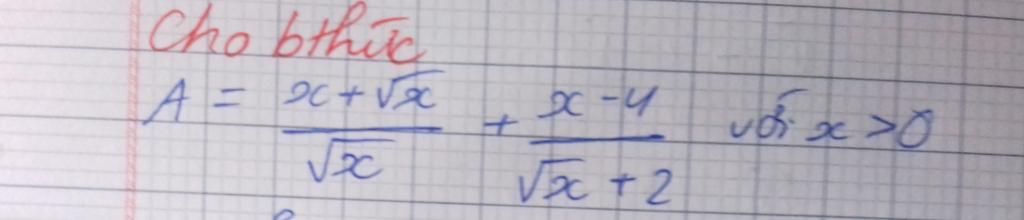 Cho bthức
A = \frac{x+\sqrt{x}}{\sqrt{x}} + \frac{x-4}{\sqrt{x}+2} với x > 0